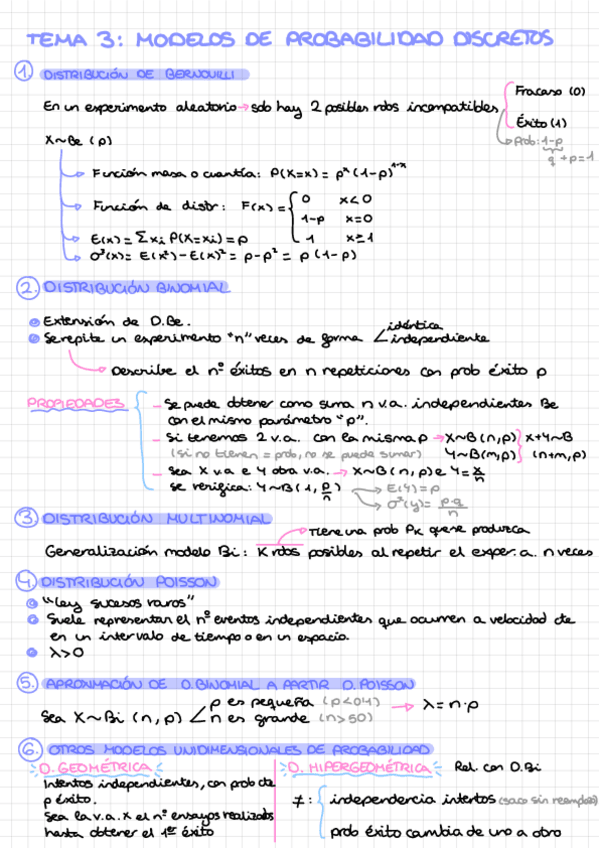 TEMA 3: MODELOS DE PROBABILIDAD DISCRETOS
1. DISTRIBUCIÓN DE BERNOUILLI
En un experimento aleatorio → solo hay 2 posibles rdos incompatibles
Fracaso (0)
Éxito (1)
Prob: 1-p
q + p = 1
X~Be (p)
Función masa o cuantía: P(X=x) = p^x (1-p)^1-x
Función de distr: F(x) = { 0 x<0
1-p x=0
1 x≥1
E(x) = Σxi P(X=xi) = p
σ²(x) = E(x²) - E(x)² = p - p² = p (1-p)
2. DISTRIBUCIÓN BINOMIAL
Extensión de D.Be.
Se repite un experimento "n" veces de forma idéntica
independiente
Describe el nº éxitos en n repeticiones con prob éxito p
PROPIEDADES
- Se puede obtener como suma n v.a. independientes Be
con el mismo parámetro "p".
- Si tenemos 2 v.a. con la misma p → X~B(n,p) } X+Y~B
(si no tienen = prob, no se puede sumar) Y~B(m,p) } (n+m,p)
- Sea X v.a e Y otra v.a. → X~B(n,p) e Y = x/n
se verifica: Y~B(1, p/n) → E(Y) = p
σ²(y) = p·q/n
3. DISTRIBUCIÓN MULTINOMIAL
Tiene una prob Pk que se produzca
Generalización modelo Bi: K rdos posibles al repetir el exper.a. n veces
4. DISTRIBUCIÓN POISSON
"Ley sucesos raros"
Suele representar el nº eventos independientes que ocurren a velocidad cte
en un intervalo de tiempo o en un espacio.
λ>0
5. APROXIMACIÓN DE D.BINOMIAL A PARTIR D.POISSON
Sea X~Bi (n,p) p es pequeña (p<0'1) → λ = n·p
n es grande (n>50)
6. OTROS MODELOS UNIDIMENSIONALES DE PROBABILIDAD
D. GEOMÉTRICA
Intentos independientes, con prob cte
p éxito.
Sea la v.a. X el nº ensayos realizados
hasta obtener el 1er éxito
D. HIPERGEOMÉTRICA Rel. con D.Bi
≠: independencia intentos (saco sin reemplazo)
prob éxito cambia de uno a otro